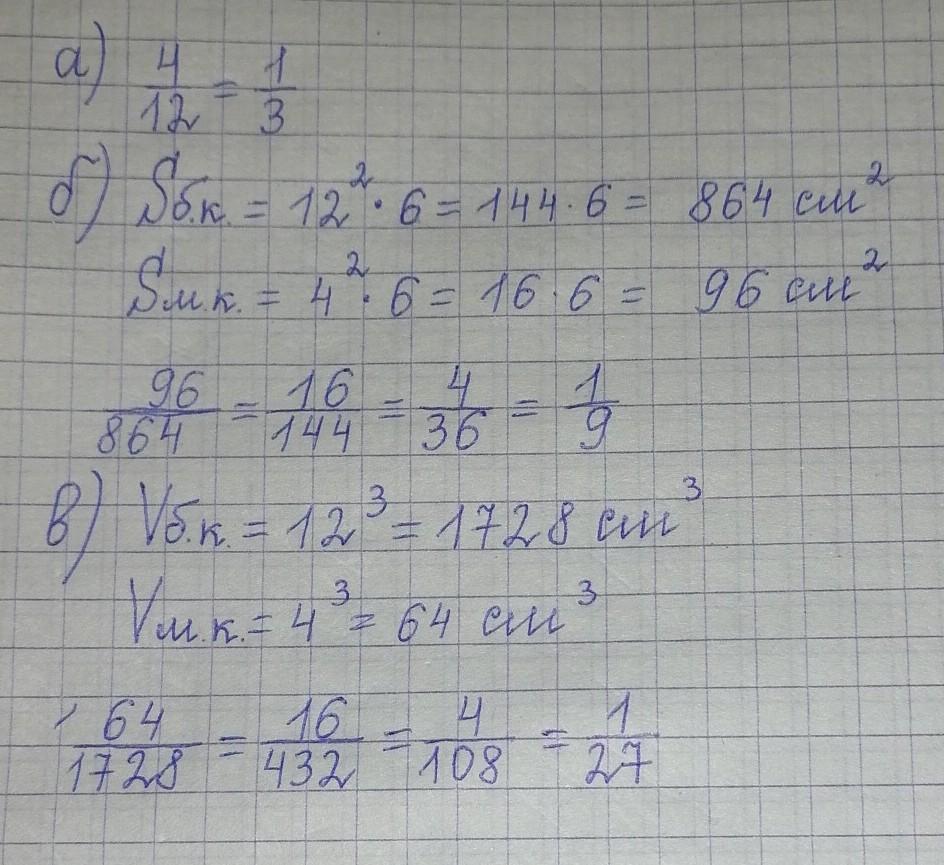 а) 4/12 = 1/3
б) Sб.к. = 12² · 6 = 144 · 6 = 864 см²
Sм.к. = 4² · 6 = 16 · 6 = 96 см²
96/864 = 16/144 = 4/36 = 1/9
в) Vб.к. = 12³ = 1728 см³
Vм.к. = 4³ = 64 см³
64/1728 = 16/432 = 4/108 = 1/27